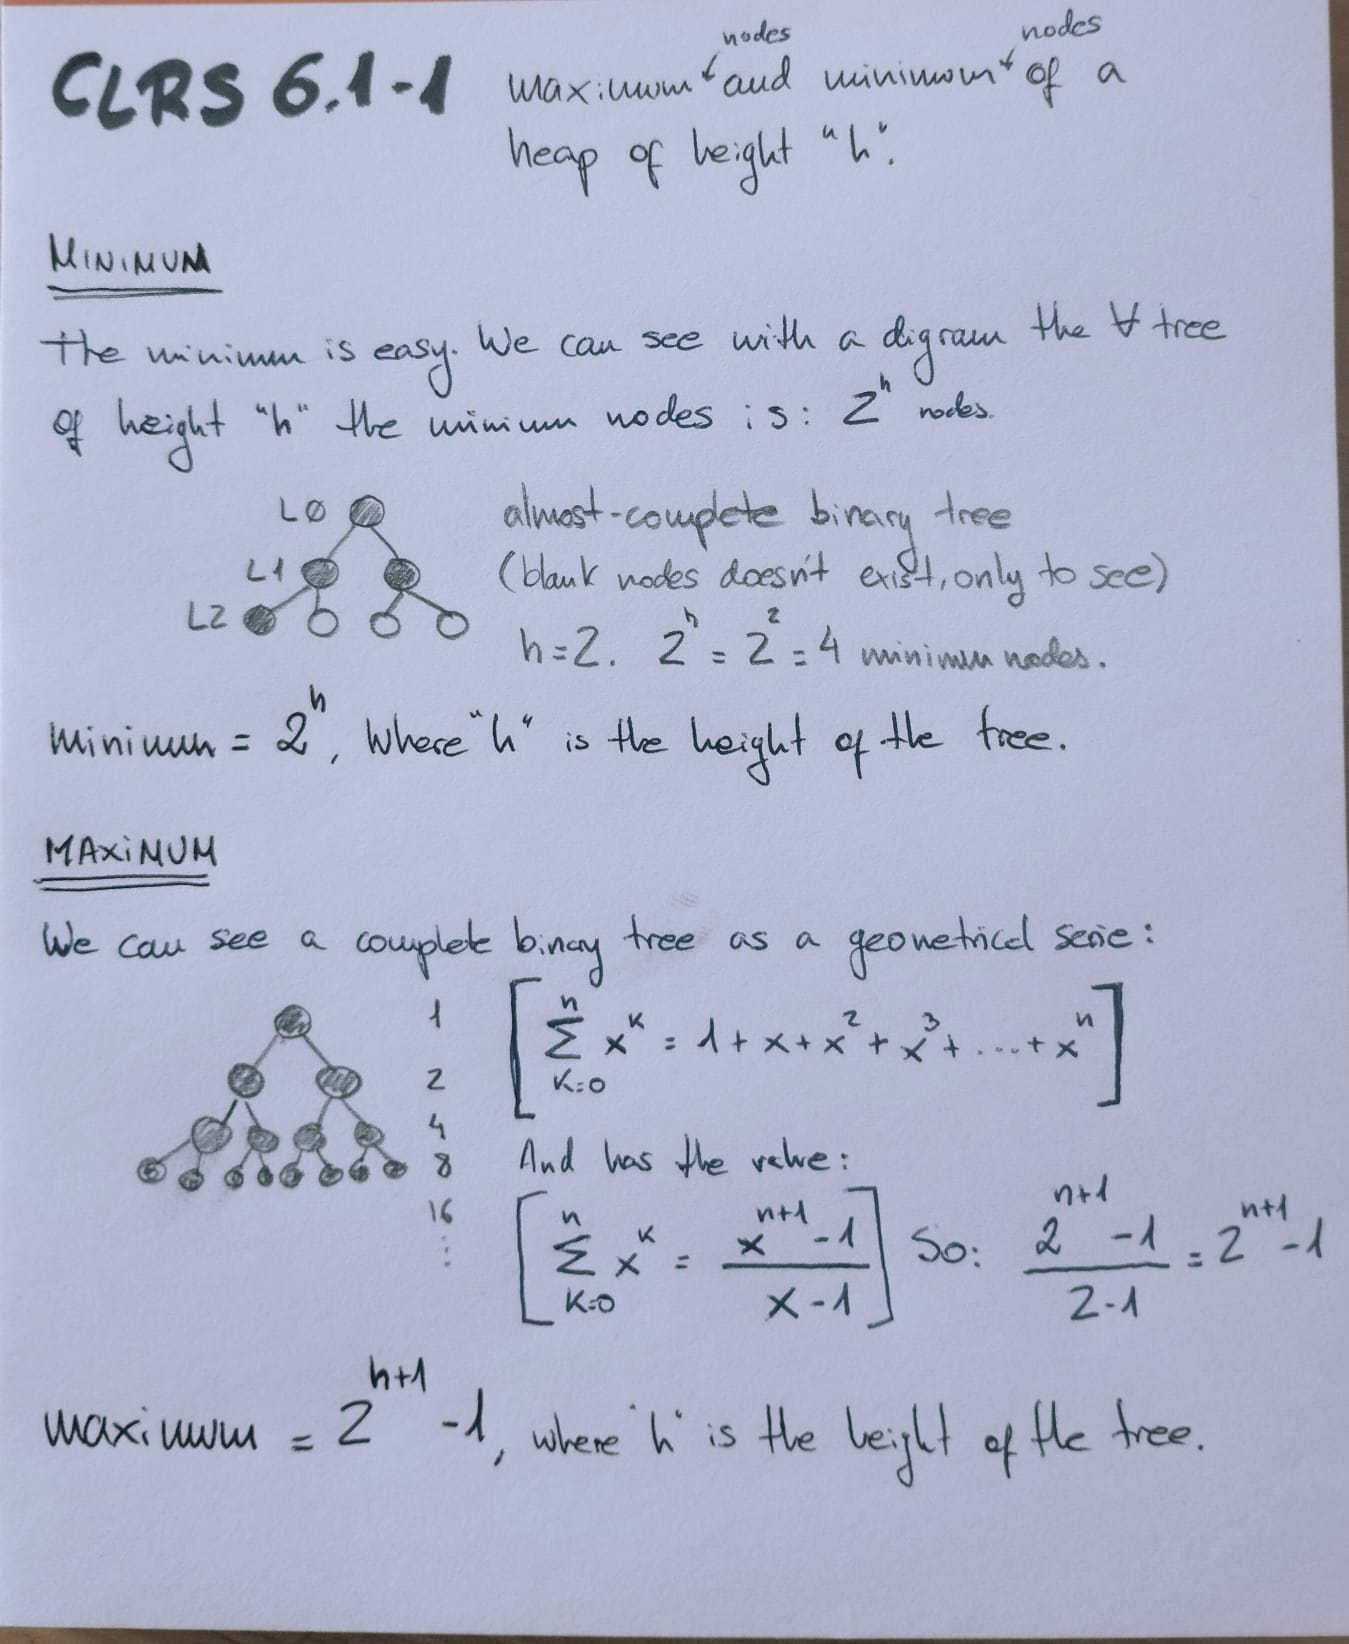 CLRS 6.1-1
nodes nodes
maximum and minimum of a
heap of height "h".
MINIMUM
the minimun is easy. We can see with a digram the ∀ tree
of height "h" the minium nodes is: 2^h nodes.
L0
L1
L2
almost-complete binary tree
(blank nodes doesn't exist, only to see)
h=2. 2^h = 2^2 = 4 minimun nodes.
minimun = 2^h, where "h" is the height of the tree.
MAXiMUM
We can see a complete binay tree as a geometrical serie:
1
2
4
8
16
⋮
[∑_{K=0}^{n} x^K = 1 + x + x^2 + x^3 + ... + x^n]
And has the value:
[∑_{K=0}^{n} x^K = (x^{n+1} - 1)/(x - 1)] So: (2^{n+1} - 1)/(2-1) = 2^{n+1} - 1
maximum = 2^{h+1} - 1, where "h" is the height of the tree.